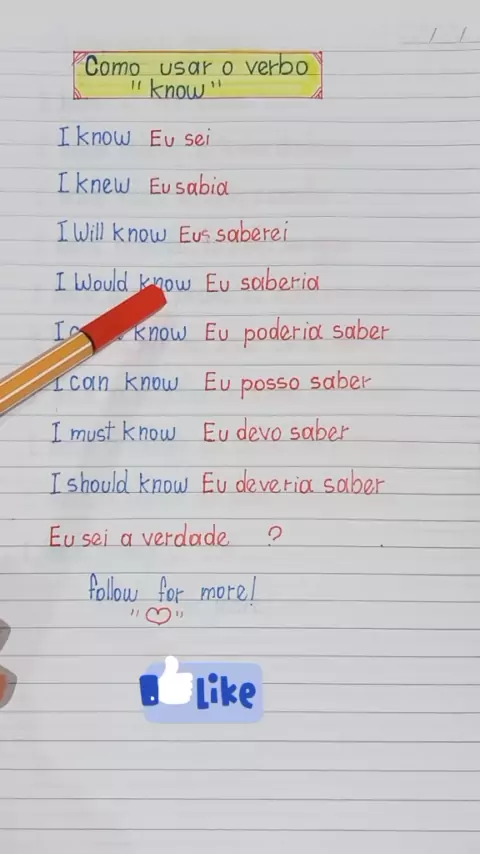 Como usar o verbo
"know"
I know Eu sei
I knew Eu sabia
I Will know Eus saberei
I Would know Eu saberia
I know Eu poderia saber
I can know Eu posso saber
I must know Eu devo saber
I should know Eu deveria saber
Eu sei a verdade ?
follow for more!
Like